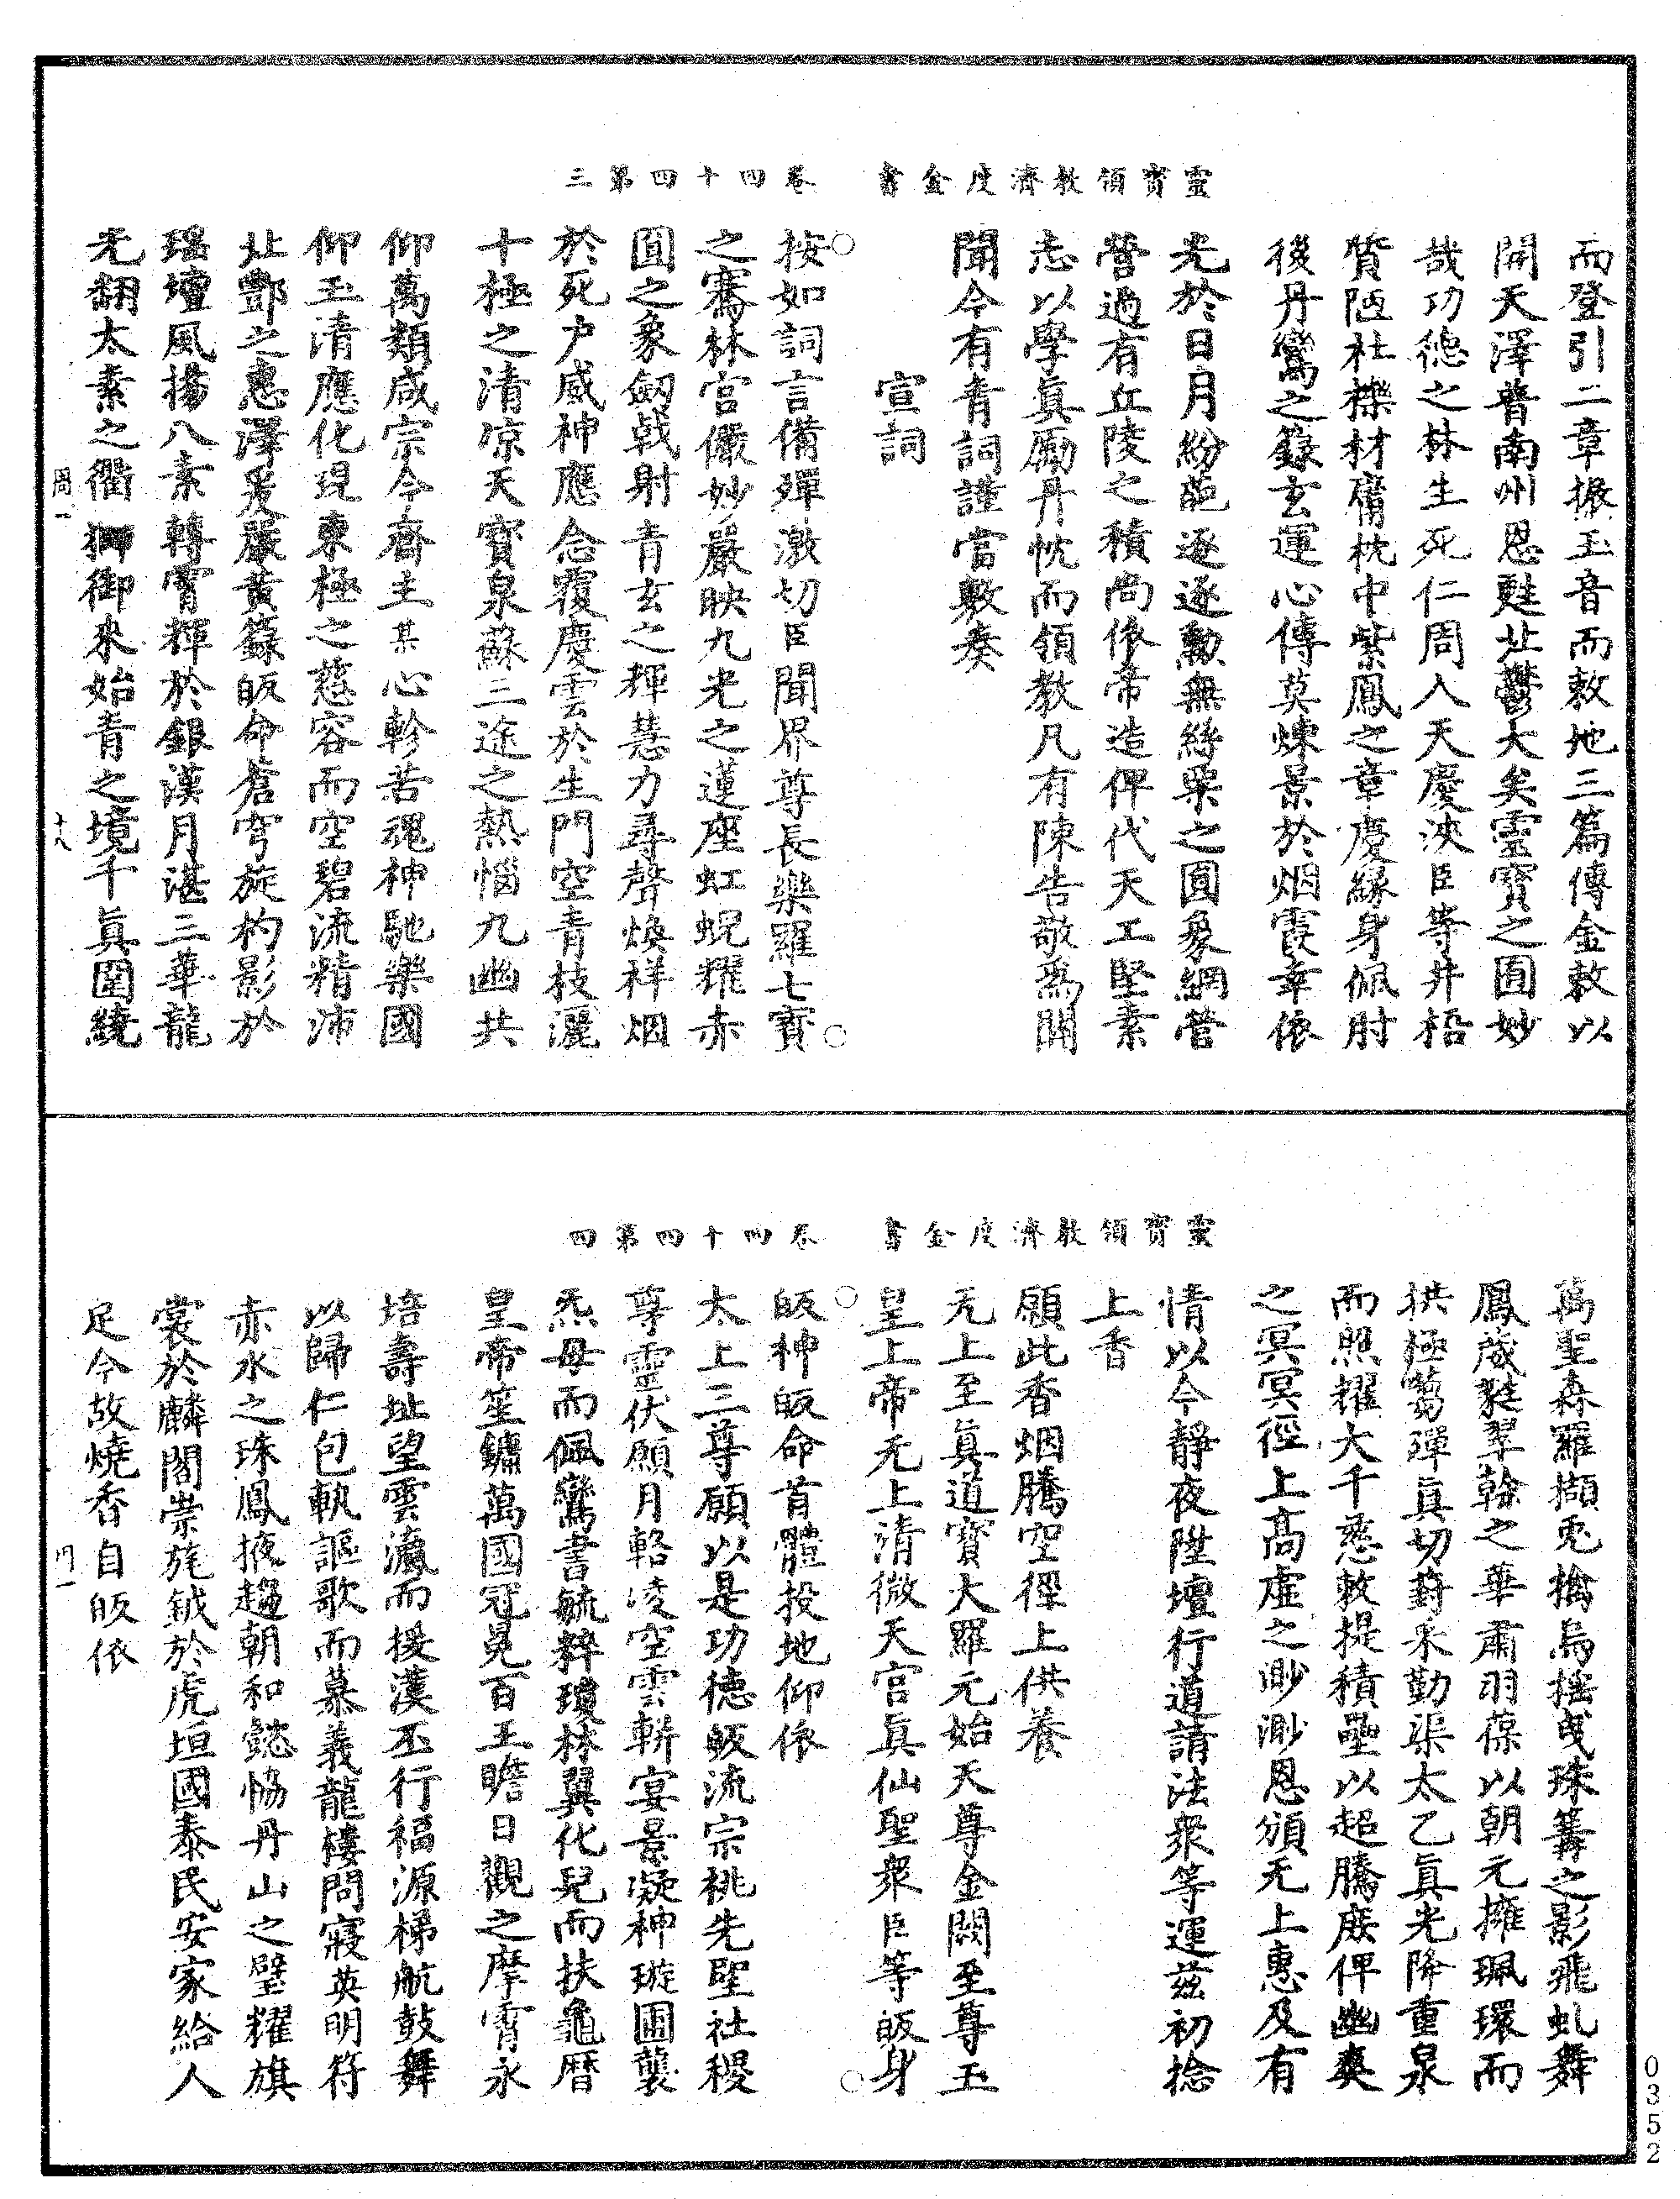 靈寶領教濟度金書　卷四十四第三
而登引二章振玉音而敕地三篇傳金敕以
開天澤普南州恩甦北鬱大矣靈寶之圓妙
哉功德之林生死仁周人天慶浹臣等井梧
質陋社櫟材庸枕中紫鳳之章慶緣身佩肘
後丹鸞之籙玄運心傳莫煉景於烟霞幸依
光於日月紛葩逐逐勳無絲粟之圓象網營
營過有丘陵之積尚依帝造俾代天工堅素
志以學眞勵丹忱而領教凡有陳告敬爲開
聞今有青詞謹當敷奏
宣詞
按如詞言備殫激切臣聞界尊長樂羅七寶
之騫林宮儼妙嚴映九光之蓮座虹蜺耀赤
圓之象劒戟射青玄之輝慧力尋聲煥祥烟
於死户威神應念覆慶雲於生門空青枝灑
十極之清涼天寶泉蘇三途之熱惱九幽共
仰萬類咸宗今齋主某心軫苦魂神馳樂國
仰玉清應化現東極之慈容而空碧流精沛
北酆之惠澤爰嚴黃籙皈命蒼穹旋杓影於
瑤壇風揚八素轉霄輝於銀漢月湛三華龍
旡翻太素之衢獅御來始青之境千眞圍繞
周一　十八
靈寶領教濟度金書　卷四十四第四
萬聖森羅擷兎擒烏搖曳珠篝之影飛虬舞
鳳葳蕤翠幹之華肅羽葆以朝元擁珮環而
拱極蒭殫眞切葑采勤渠太乙眞光降重泉
而照耀大千慈敕提積壘以超騰庶俾幽爽
之冥冥徑上高虛之渺渺恩頒无上惠及有
情以今靜夜陞壇行道請法衆等運玆初捻
上香
願此香烟騰空徑上供養
无上至眞道寶大羅元始天尊金闕至尊玉
皇上帝无上清微天宮眞仙聖衆臣等皈身
皈神皈命首體投地仰依
太上三尊願以是功德皈流宗祧先聖社稷
尊靈伏願月輅凌空雲輧宴景凝神璇圃襲
炁母而佩鸞書毓粹瓊林翼化兒而扶龜曆
皇帝笙鏞萬國冠冕百王瞻日觀之摩霄永
培壽址望雲瀛而援漢丕行福源梯航鼓舞
以歸仁包軌謳歌而慕義龍樓問寢英明符
赤水之珠鳳掖趨朝和懿恊丹山之璧耀旗
裳於麟閣崇旄鉞於虎垣國泰民安家給人
足今故燒香自皈依
0352